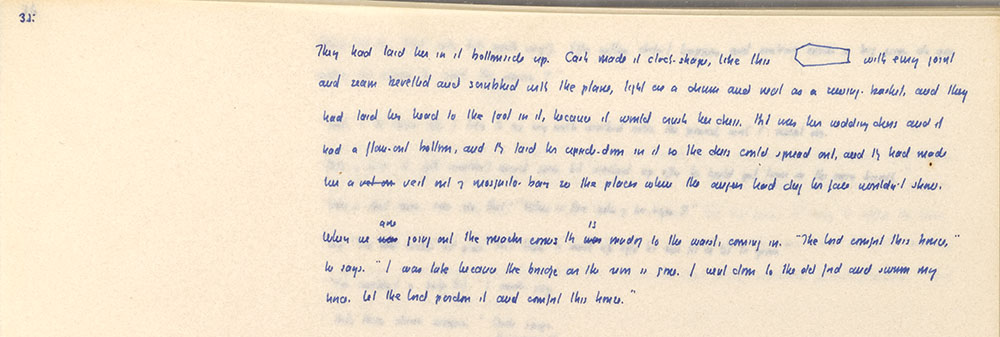 They had laid her in it bottomside up. Cash made it clock-shape, like this with every joint
and seam bevelled and scrubbed with the plane, tight as a drum and neat as a sewing-basket, and they
had laid her head to the foot in it, because it would crush her dress. It was her wedding dress and it
had a flare-out bottom, and they laid her upside-down in it so the dress could spread out, and they had made
her a veil out of mosquito-bar so the places where the augers had dug her face wouldn't show.
are is
When we was going out the preacher comes. He was muddy to the waist, coming in. "The Lord comfort this house,"
he says. "I was late because the bridge on the river is gone. I went down to the old ford and swum my
horse. Let the Lord pardon it and comfort this house."